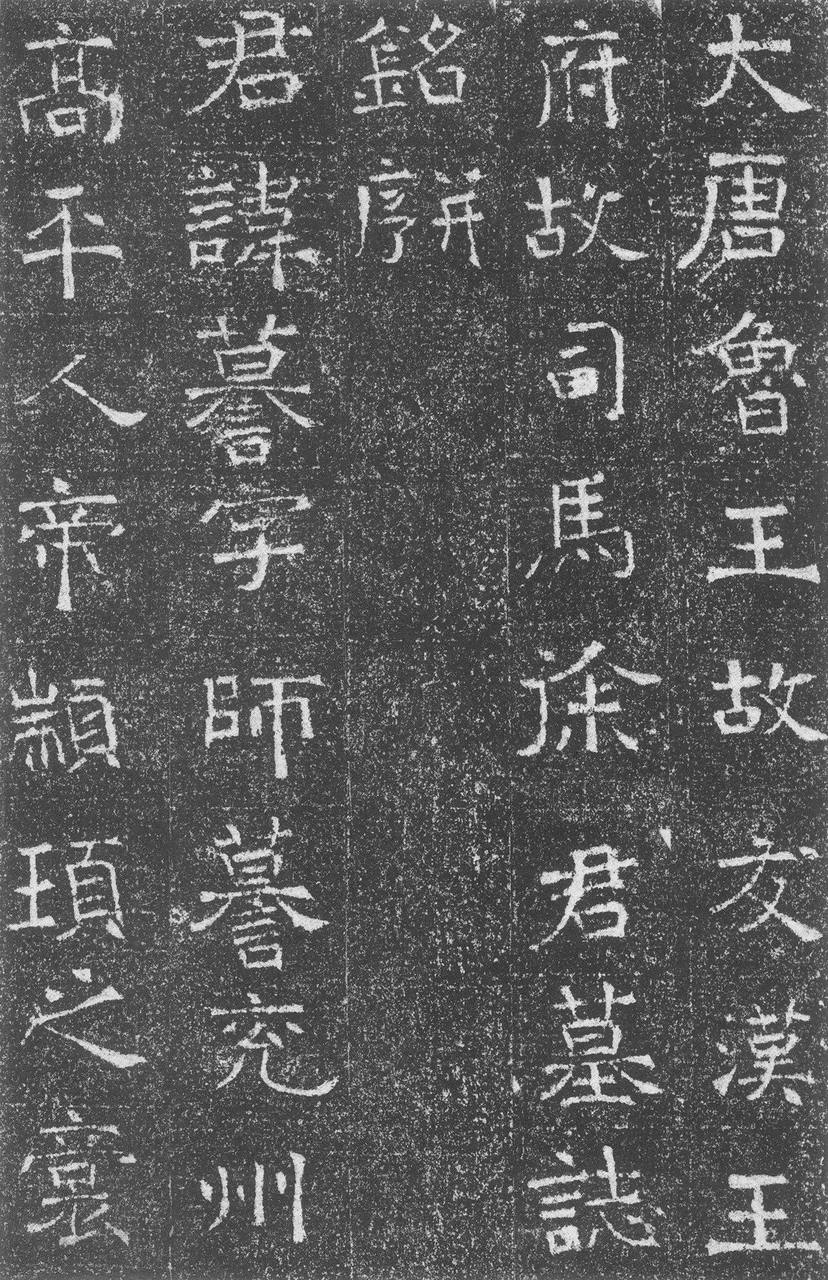 大唐魯王故友漢王
府故司馬徐君墓誌
銘并序
君諱謩字師謩兖州
高平人帝顓頊之裔